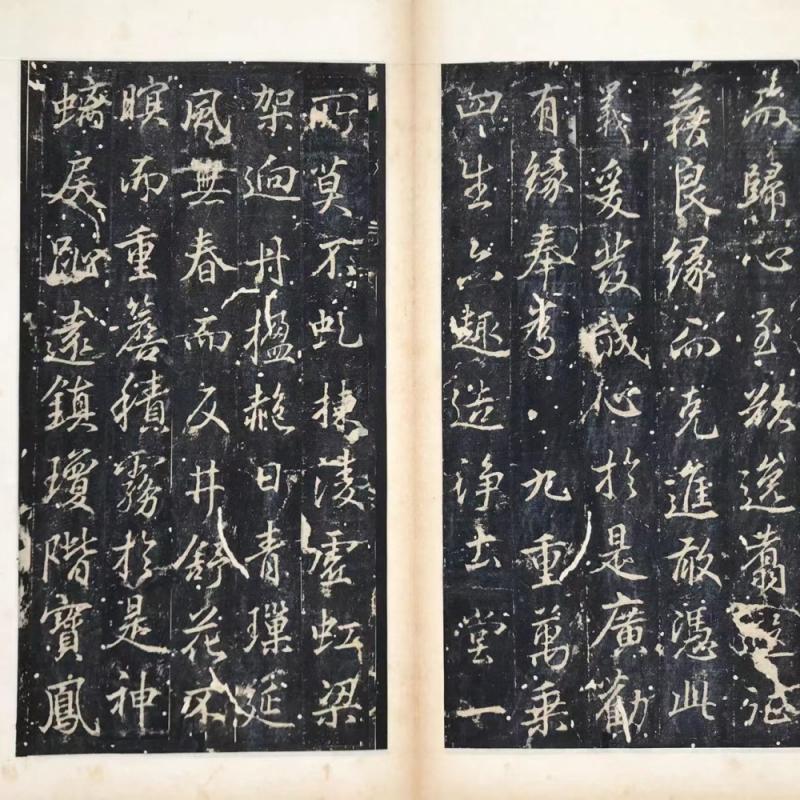 故歸心至欲逸翥
藉良緣而克進敢憑此
義爰發誠心於是廣勸
有緣奉為九重萬乘
四生六趣造淨土堂一
所莫不虬棟凌虛虹梁
架迥丹楹赩日青璅延
風無春而反井舒花不
暝而重簷積霧於是神
螭戾趾遠鎮瓊階寶鳳